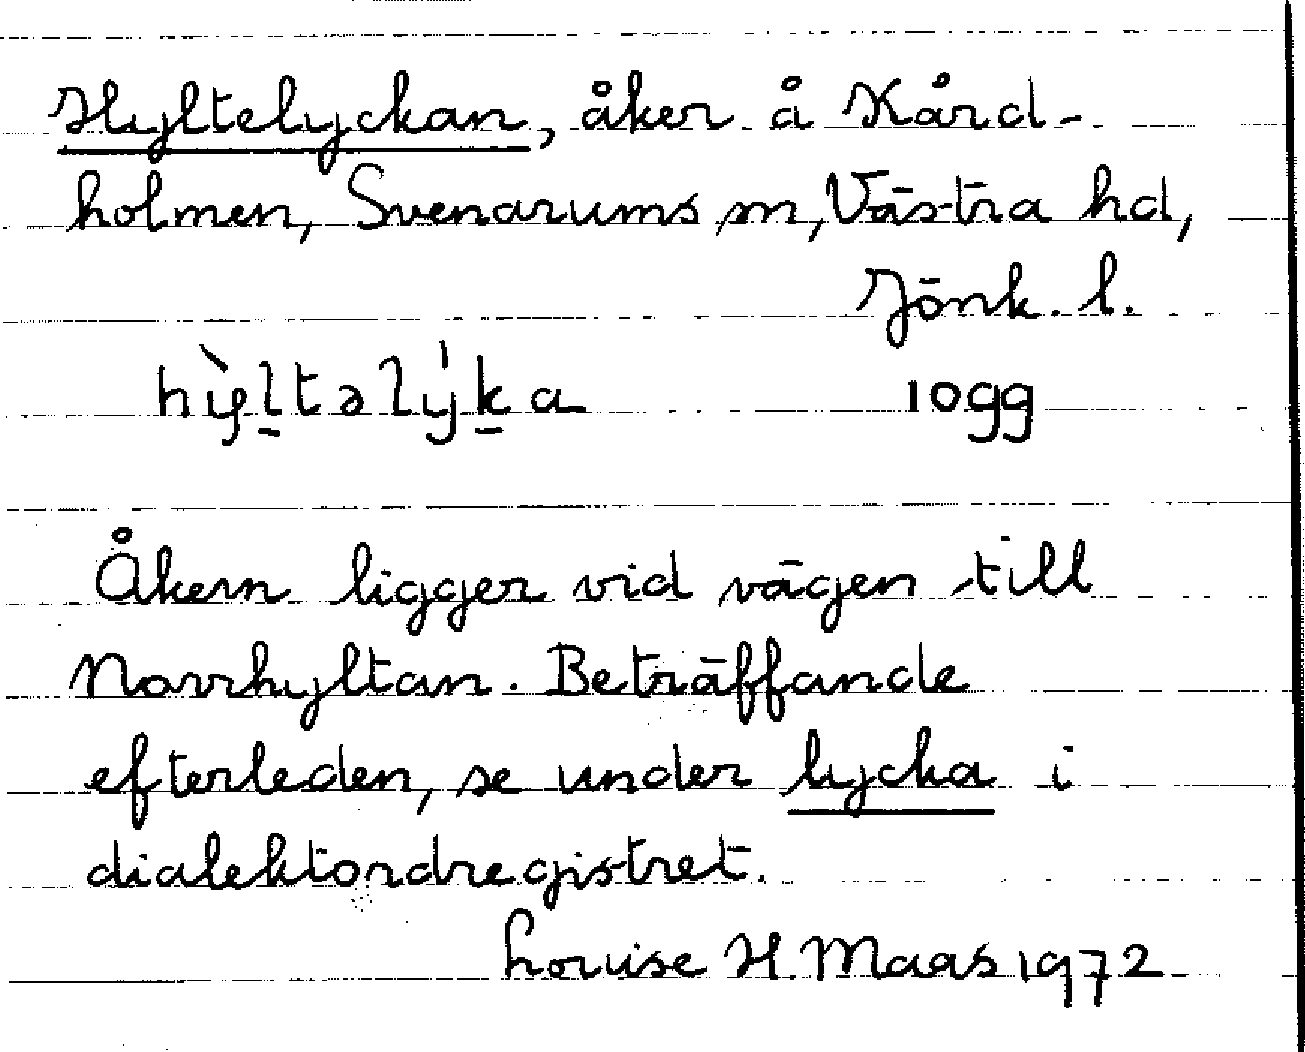 Hyltelyckan, åker å Kård-
holmen, Svenarums sn, Västra hd,
Jönk. l.
hỳḻtəlýḵa 1099
Åkern ligger vid vägen till
Norrhyltan. Beträffande
efterleden, se under lycka i
dialektordregistret.
Louise H. Maas 1972